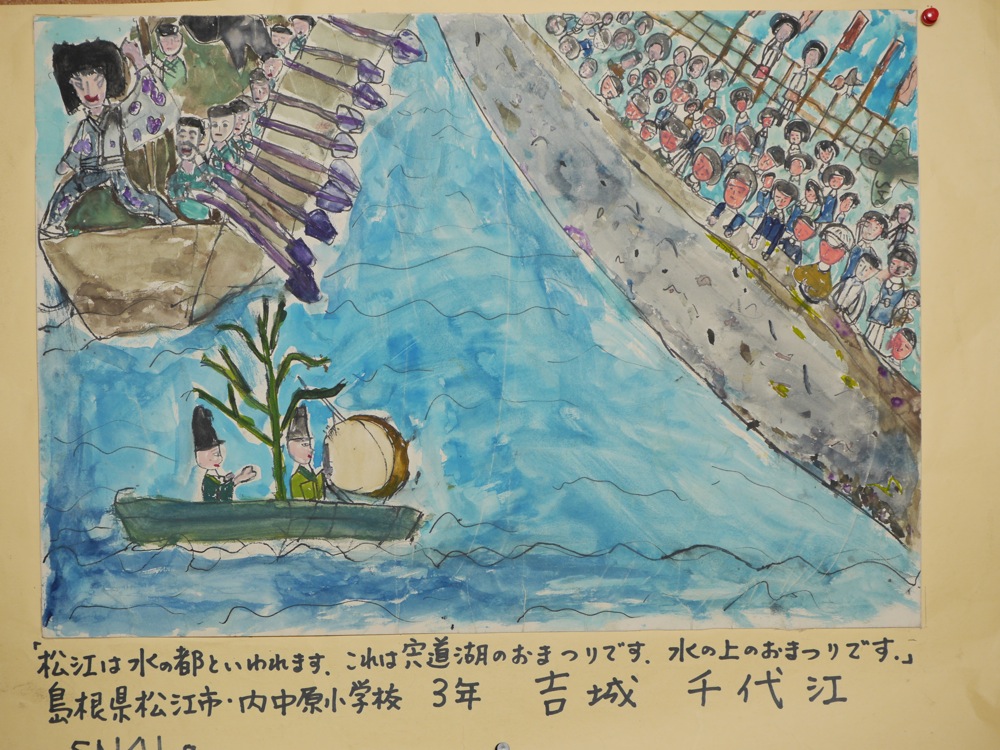 「松江は水の都といわれます．これは宍道湖のおまつりです．水の上のおまつりです．」
島根県松江市・内中原小学校 3年 吉城 千代江